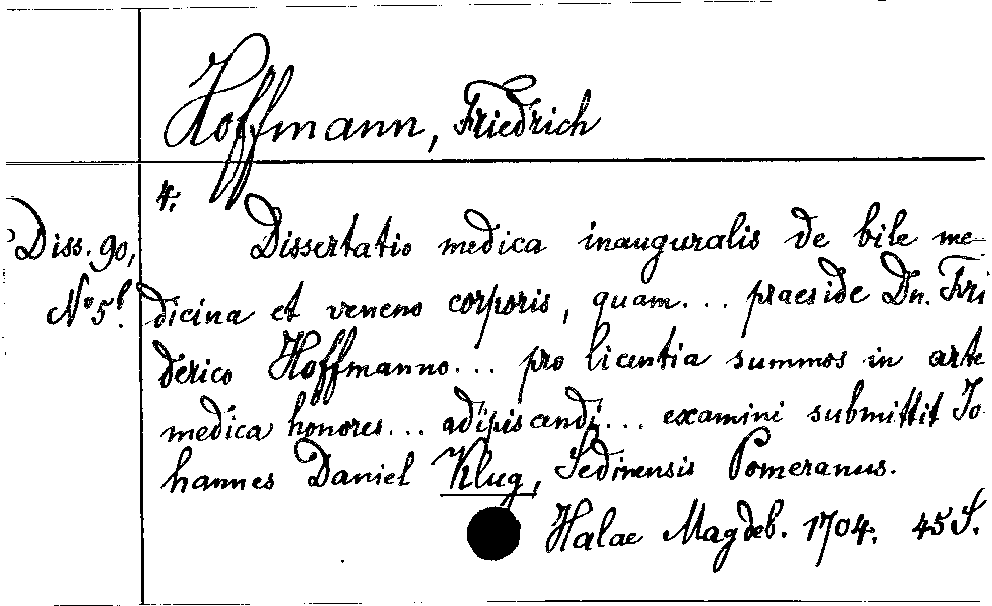 Hoffmann, Friedrich
4.
Diss. 90,
No 5b.
Dissertatio medica inauguralis de bile me-
dicina et veneno corporis, quam... praeside Dn. Fri
derico Hoffmanno... pro licentia summos in arte
medica honores... adipiscendi... examini submittit Jo-
hannes Daniel Klug, Sedinensis Pomeranus.
Halae Magdeb. 1704. 45 S.